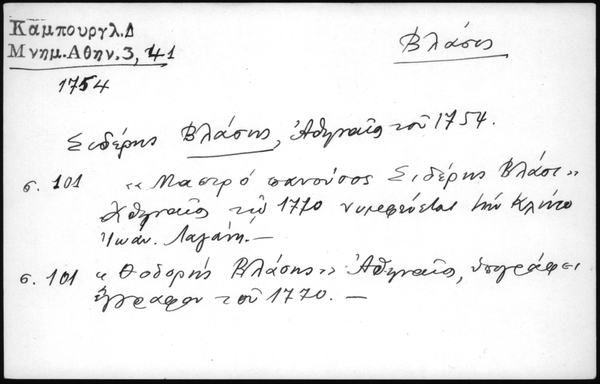 Καμπουργλ.Δ
Μνημ.Αθην.3, 41
Βλάσης
1754
Σιδέρης Βλάσης, Ἀθηναῖος τοῦ 1754.
σ. 101 «Μαστρό πανούσος Σιδέρης Βλάσι»
Ἀθηναῖος τῷ 1770 νυμφεύεται τήν
Ἰωάν. Λαγάνη.—
σ. 101 «Θοδορής Βλάσης» Ἀθηναῖος, ὑπογράφει
ἔγγραφον τοῦ 1770. —